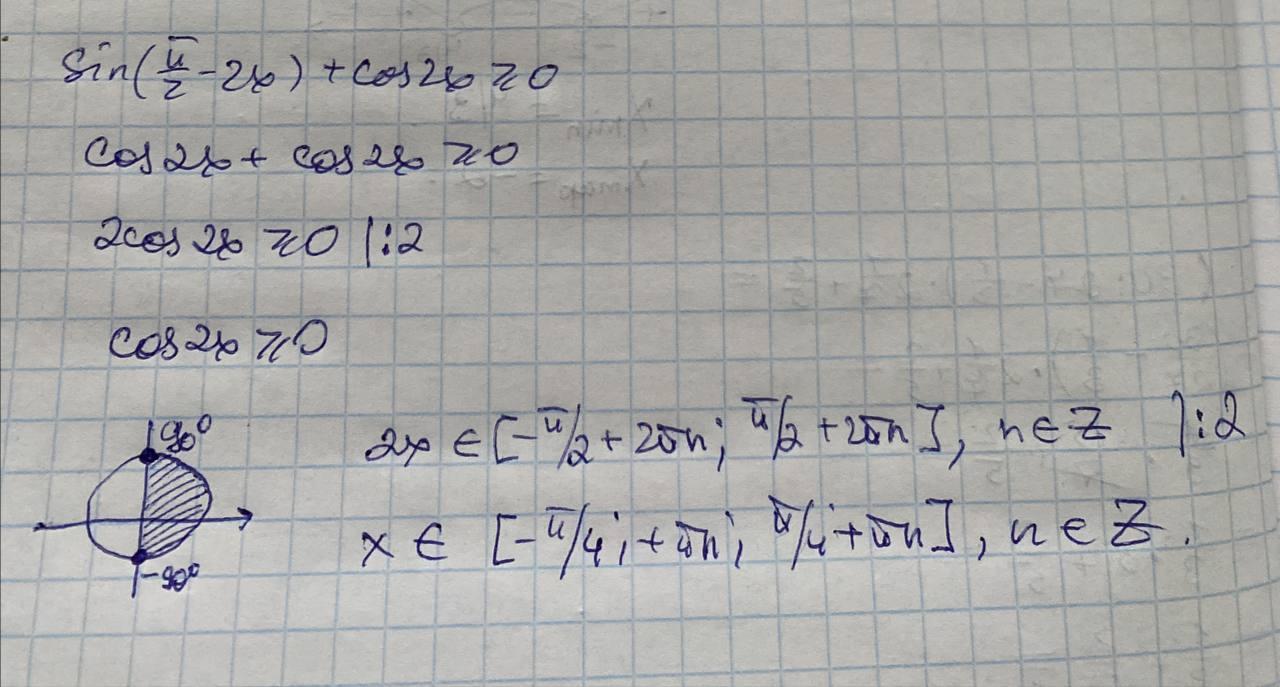 sin(π/2 - 2x) + cos2x ≥ 0
cos2x + cos2x ≥ 0
2cos2x ≥ 0 |:2
cos2x ≥ 0
90°
2x ∈ [-π/2 + 2πn; π/2 + 2πn], n ∈ Z |:2
x ∈ [-π/4; + πn; π/4 + πn], n ∈ Z.
-90°